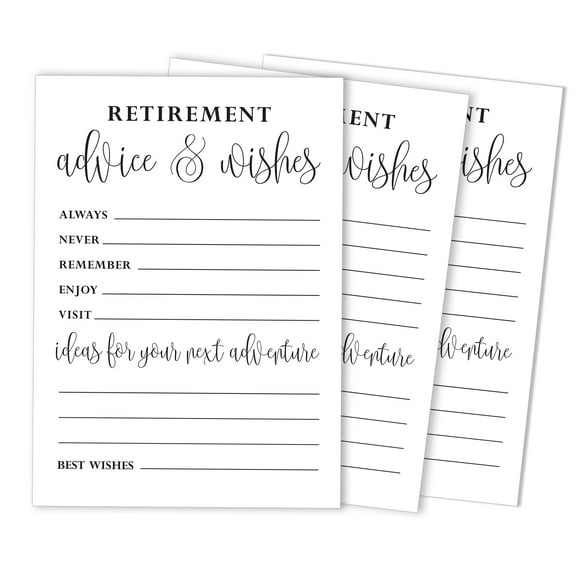 RETIREMENT
advice & wishes
ALWAYS
NEVER
REMEMBER
ENJOY
VISIT
ideas for your next adventure
BEST WISHES
MENT
wishes
adventure
NT
ishes
dventure